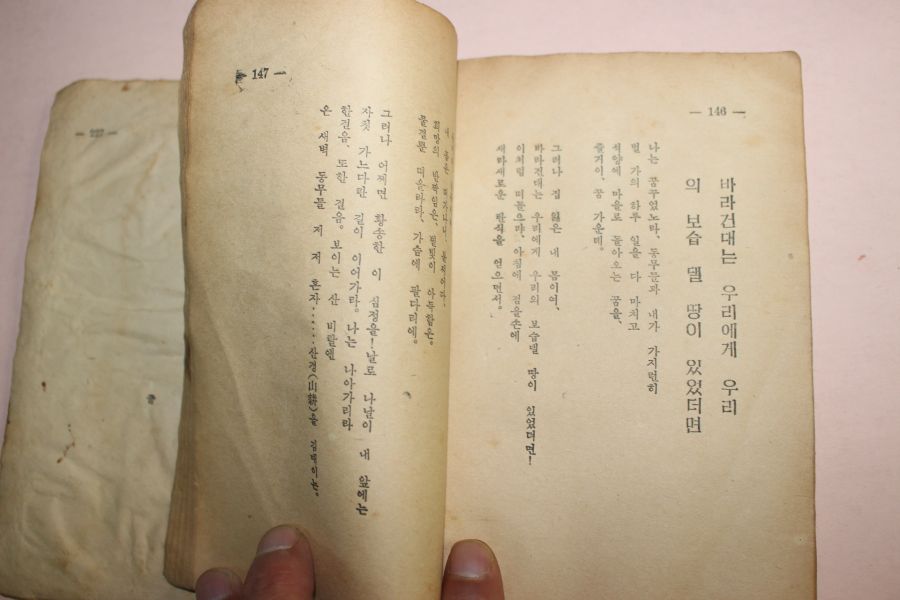 — 146 —
바라건대는 우리에게 우리
의 보습 댈 땅이 있었더면
나는 꿈꾸었노라, 동무들과 내가 가지런히
벌 가의 하루 일을 다 마치고
석양에 마을로 돌아오는 꿈을,
즐거이, 꿈 가운데.
그러나 집 잃은 내 몸이여,
바라건대는 우리에게 우리의 보습댈 땅이 있었더면!
이처럼 떠돌으랴, 아침에 점을손에
새라새로운 탄식을 얻으면서.
— 147 —
희망의 반짝임은, 별빛이 아득함은.
물결뿐 떠올라라, 가슴에 팔다리에.
그러나 어쩌면 황송한 이 심정을! 날로 나날이 내 앞에는
자칫 가느다란 길이 이어가라. 나는 나아가리라
한걸음, 또한 걸음. 보이는 산 비탈엔
온 새벽 동무들 저 저 혼자……산경(山耕)을 김매이는.